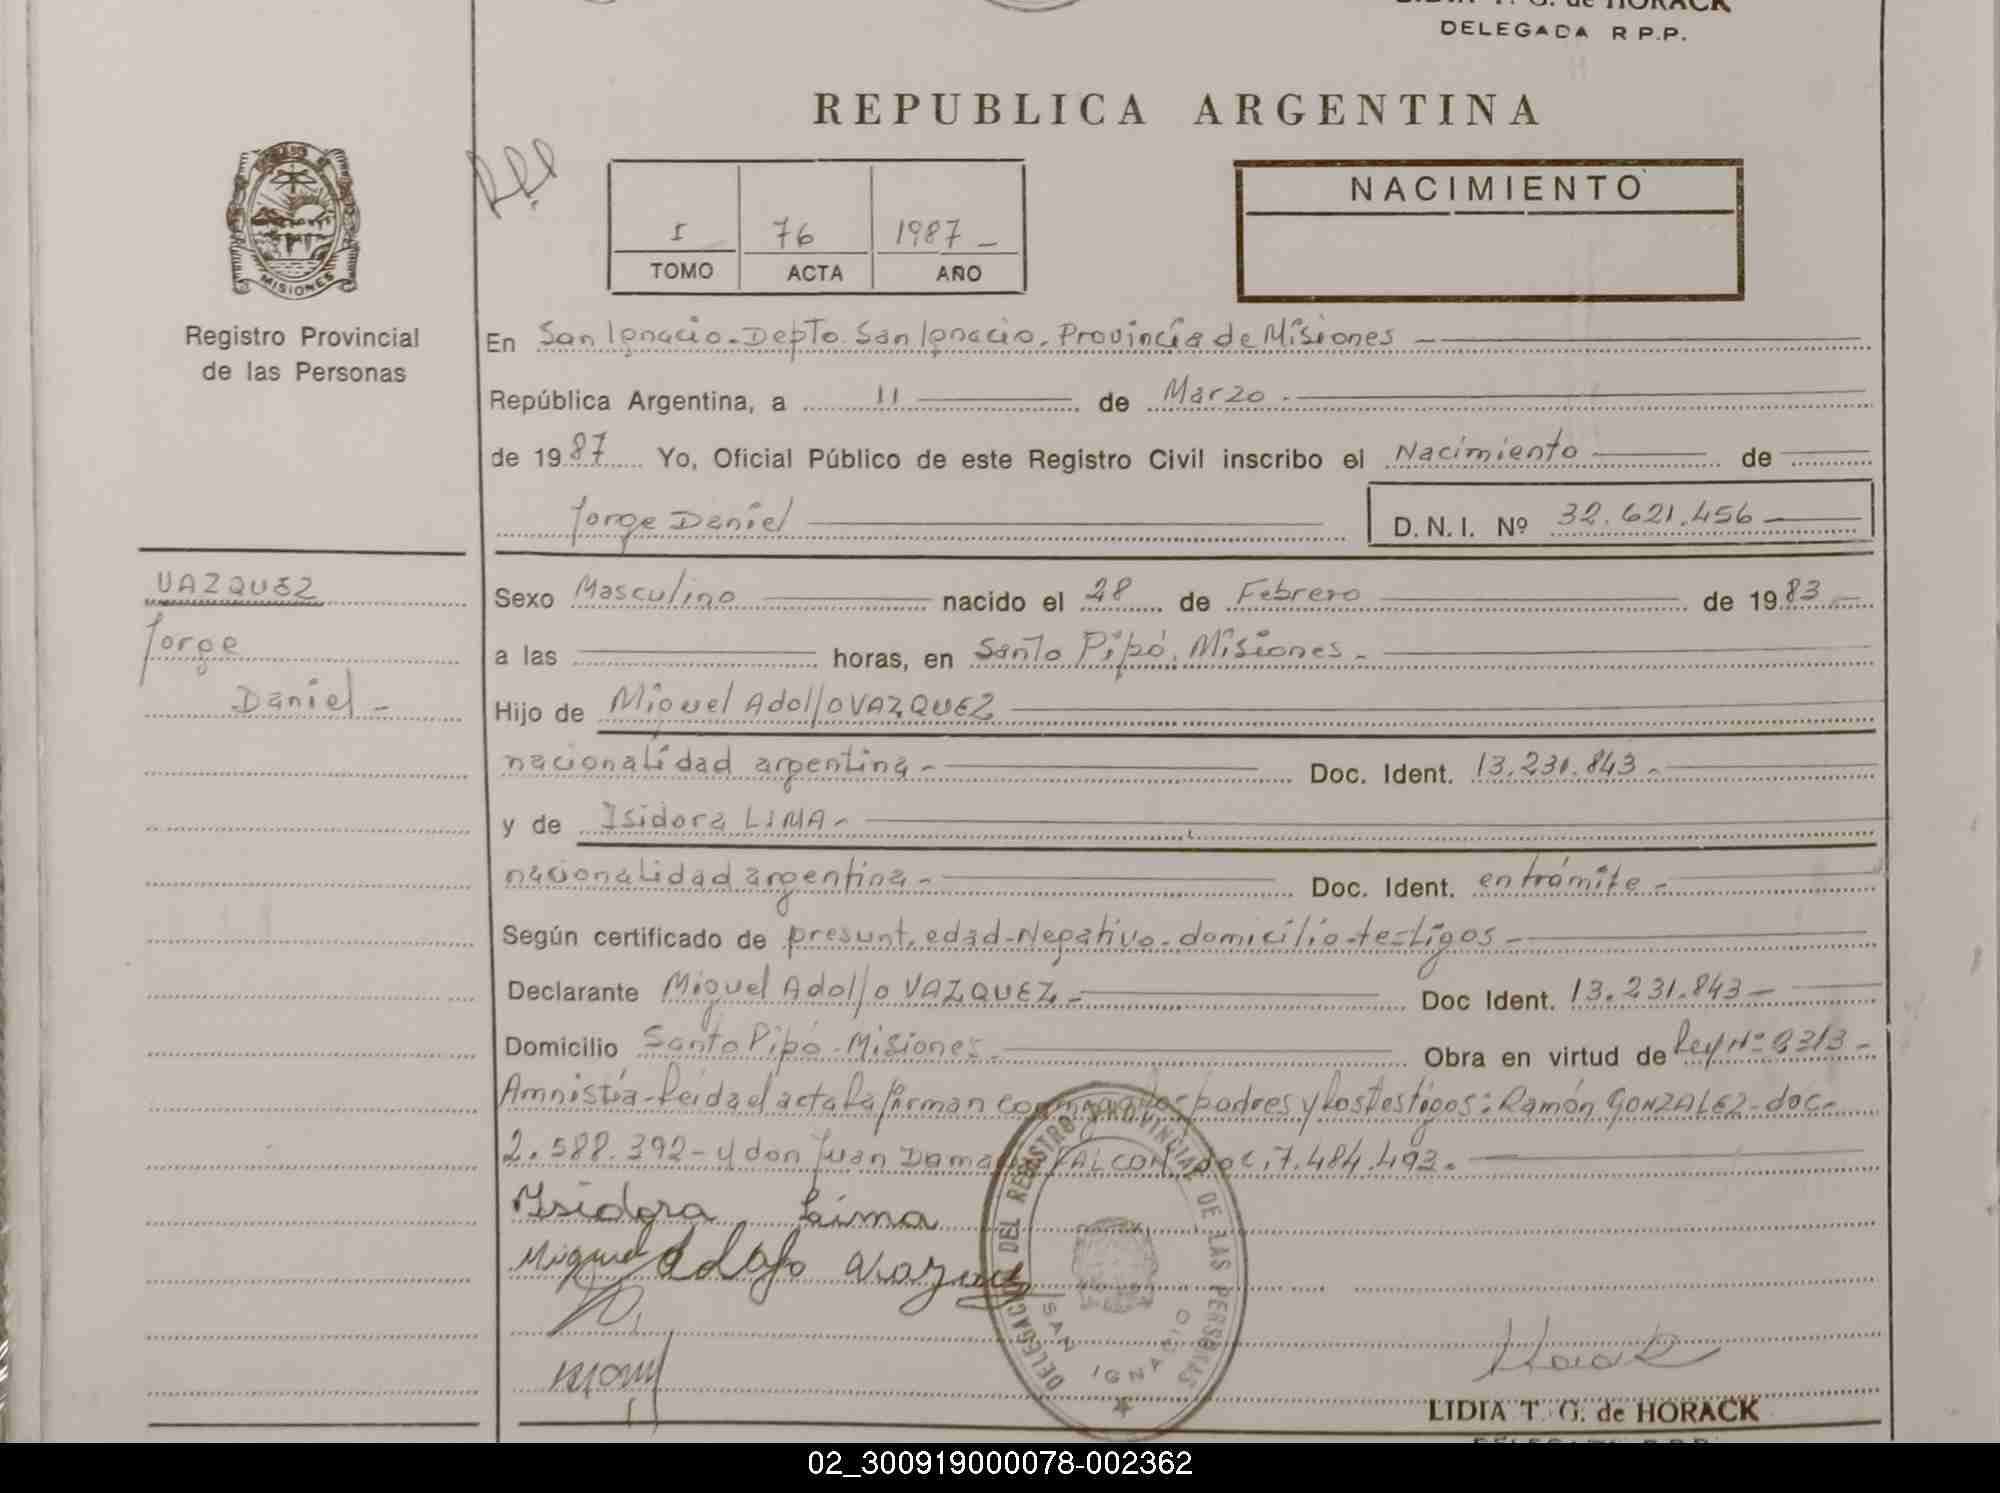 LIDIA T. G. de HORACK
DELEGADA R.P.P.
REPUBLICA ARGENTINA
I 76 1987 -
TOMO ACTA AÑO
NACIMIENTO
MISIONES
Registro Provincial
de las Personas
En San Ignacio - Depto. San Ignacio. Provincia de Misiones -
República Argentina, a 11 de Marzo -
de 1987 Yo, Oficial Público de este Registro Civil inscribo el Nacimiento de
Jorge Daniel D.N.I. Nº 32.621.456 -
VAZQUEZ
Jorge
Daniel -
Sexo Masculino nacido el 28 de Febrero de 1983 -
a las horas, en Santo Pipó. Misiones -
Hijo de Miguel Adolfo VAZQUEZ
nacionalidad argentina - Doc. Ident. 13.231.843 -
y de Isidora LIMA -
nacionalidad argentina - Doc. Ident. en trámite -
Según certificado de presunt. edad - Negativo - domicilio - testigos -
Declarante Miguel Adolfo VAZQUEZ - Doc Ident. 13.231.843 -
Domicilio Santo Pipó - Misiones - Obra en virtud de Ley Nº 2313 -
Amnistía - Leída el acta la firman conmigo los padres y los testigos: Ramón GONZALEZ - doc.
2.588.392 - y don Juan FALCON doc. 7.484.493. -
Isidora Lima
Miguel Adolfo Vazquez
DELEGACION DEL REGISTRO PROVINCIAL DE LAS PERSONAS
SAN IGNACIO
Horack
LIDIA T. G. de HORACK
DELEGADA R.P.P.
02_300919000078-002362